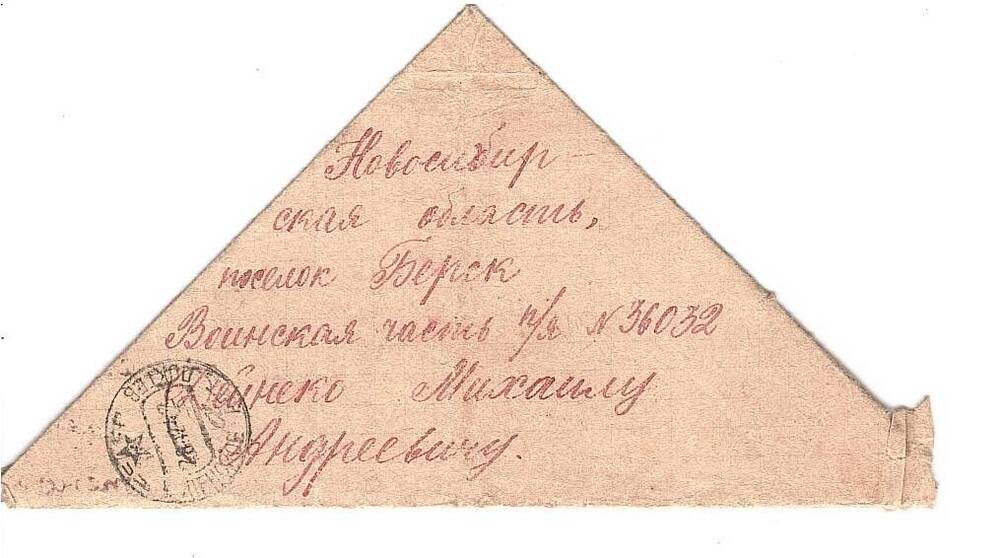 Новосибир-
ская область,
поселок Берск
Воинская часть п/я N 36032
Михаилу
Андреевичу.